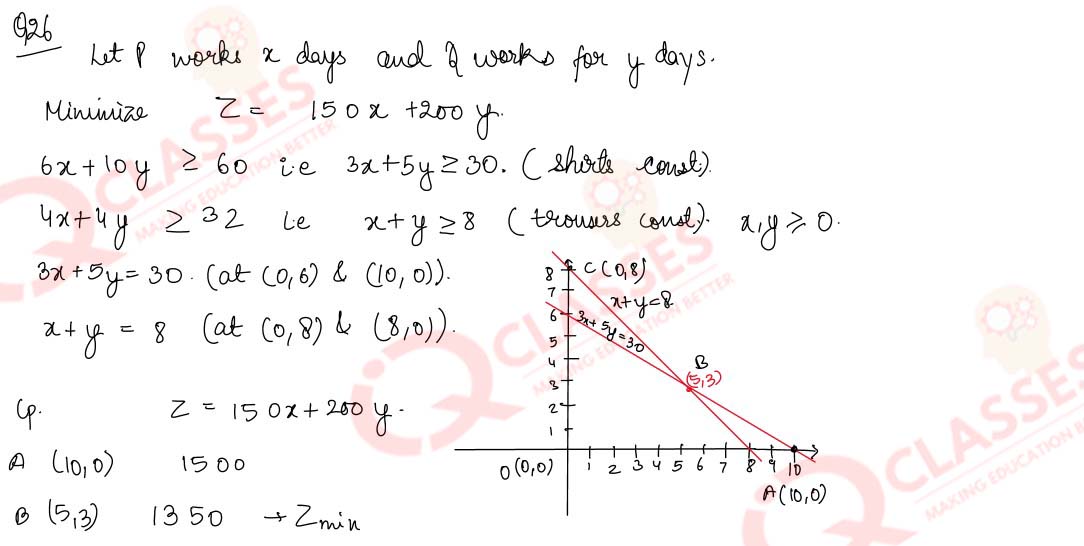 Q26
Let P works x days and Q works for y days.
Minimize Z = 150x + 200y.
6x + 10y ≥ 60 i.e 3x + 5y ≥ 30. (shirts const).
4x + 4y ≥ 32 i.e x + y ≥ 8 (trousers const). x,y ≥ 0.
3x + 5y = 30. (at (0,6) & (10,0)).
x + y = 8 (at (0,8) & (8,0)).
Cp. Z = 150x + 200y.
A (10,0) 1500
B (5,3) 1350 → Zmin
C (0,8)
x+y=8
3x+5y=30
B
(5,3)
8
7
6
5
4
3
2
1
O (0,0) 1 2 3 4 5 6 7 8 9 10
A(10,0)
iQ CLASSES
MAKING EDUCATION BETTER
iQ CLASSES
MAKING EDUCATION BETTER
iQ CLASSES
MAKING EDUCATION